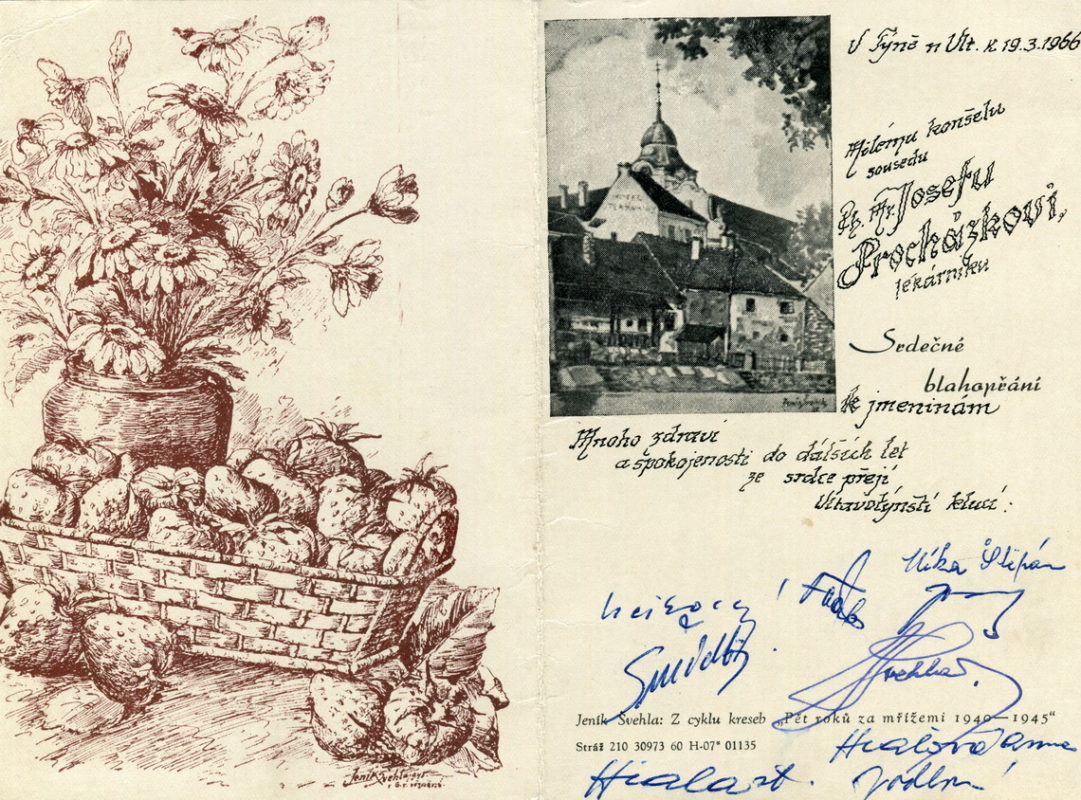 V Týně n Vlt. k 19.3.1966
Milému konšelu
sousedu
Ph. Mr. Josefu
Procházkovi,
lékárníku
Srdečné
blahopřání
k jmeninám
Mnoho zdraví
a spokojenosti do dalších let
ze srdce přejí
Vltavotýnští kluci:
Štěpán
Švehla
Jeník Švehla: Z cyklu kreseb „Pět roků za mřížemi 1940—1945“
Stráž 210 30973 60 H-07* 01135
Jeník Švehla